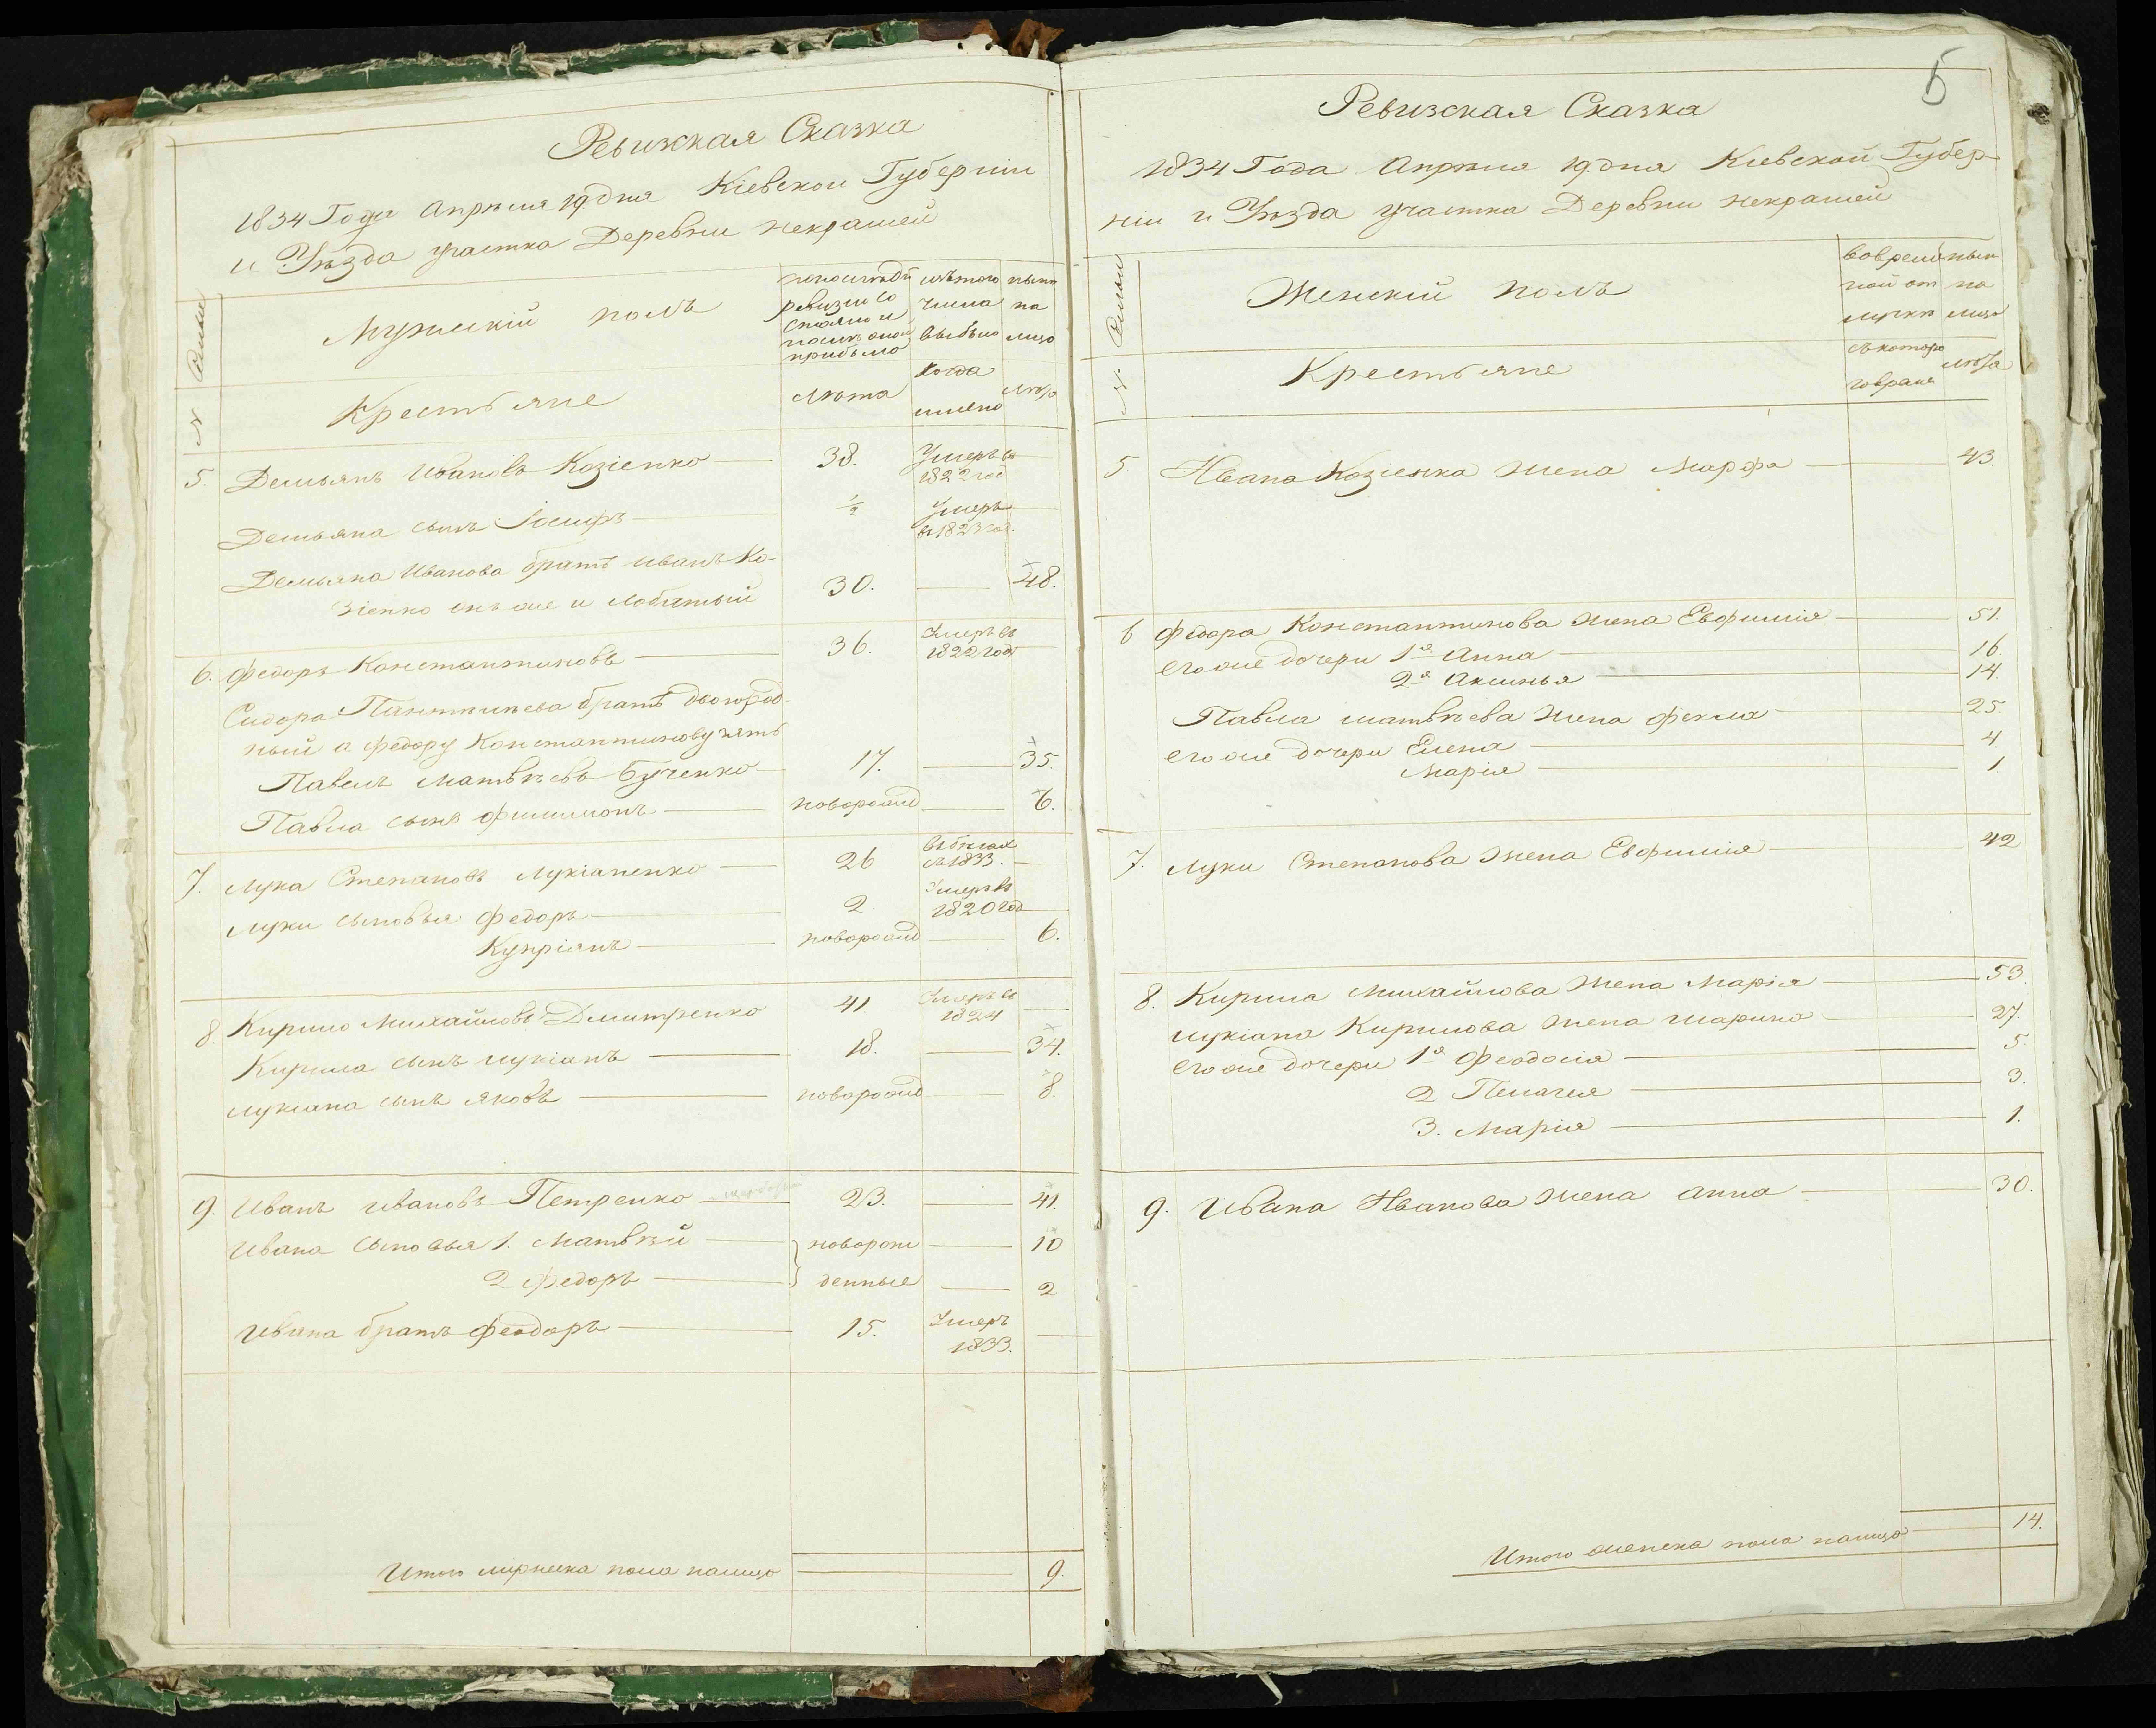 Ревижская Сказка
1834 Года Апрѣля 19 дня Кіевской Губерніи
и Уѣзда участка Деревни Некрашей
N Семьи
Мужескій полъ
по последней ревизіи состояло и после оной прибыло
изъ того числа выбыло
нынѣ на лицо
Крестьяне
Лѣта
когда имено
Лѣта
5. Демьянъ Ивановъ Козіенко 38. Умеръ въ 1822 год
Демьяна сынъ Іосифъ 1/2 Умеръ в 1823 год.
Демьяна Иванова братъ Иванъ Ко-
зіенко онъ же и Лобатый 30. 48.
6. Федоръ Константиновъ 36. Умеръ въ 1822 год
Сидора братъ двоюрод-
ный а Федору Константинову зять
Павелъ Матвѣевъ Бученко 17. 35.
Павла сынъ Филимонъ новорожд 6.
7. Лука Степановъ Лукіаненко 26 в бѣгах съ 1833.
Луки сыновья Федоръ 2 Умеръ въ 1820 год
Купріянъ новорожд 6.
8. Кирило Михайловъ Дмитренко 41 Умеръ в 1824
Кирила сынъ Лукіанъ 18. 34.
Лукіана сынъ Яковъ новорожд 8.
9. Иванъ Ивановъ Петренко 23. 41.
Ивана сыновья 1. Матвѣй новорож 10
2 Федоръ денные 2
Ивана братъ Феодоръ 15. Умеръ 1833.
Итого мужеска пола налицо 9.
5
Ревизская Сказка
1834 Года Апрѣля 19 дня Кіевской Губер-
ніи и Уѣзда участка Деревни Некрашей
N Семьи
Женскій полъ
во временной отлучкѣ
нынѣ на лицо
Крестьяне
съ которого времени
Лѣта
5 Ивана Козіенка жена Марфа 43.
6 Федора Константинова жена Евфимія 51.
его же дочери 1я Анна 16.
2я Аксинья 14.
Павла Матвѣева жена Фекла 25.
его же дочери Елена 4.
Марія 1
7. Луки Степанова жена Евфимія 42
8. Кирила Михайлова жена Марія 53.
Лукіана Кирилова жена Марина 27.
его же дочери 1я Феодосія 5.
2 Пелагея 3.
3. Марія 1.
9. Ивана Иванова жена Анна 30.
Итого женска пола налицо 14.